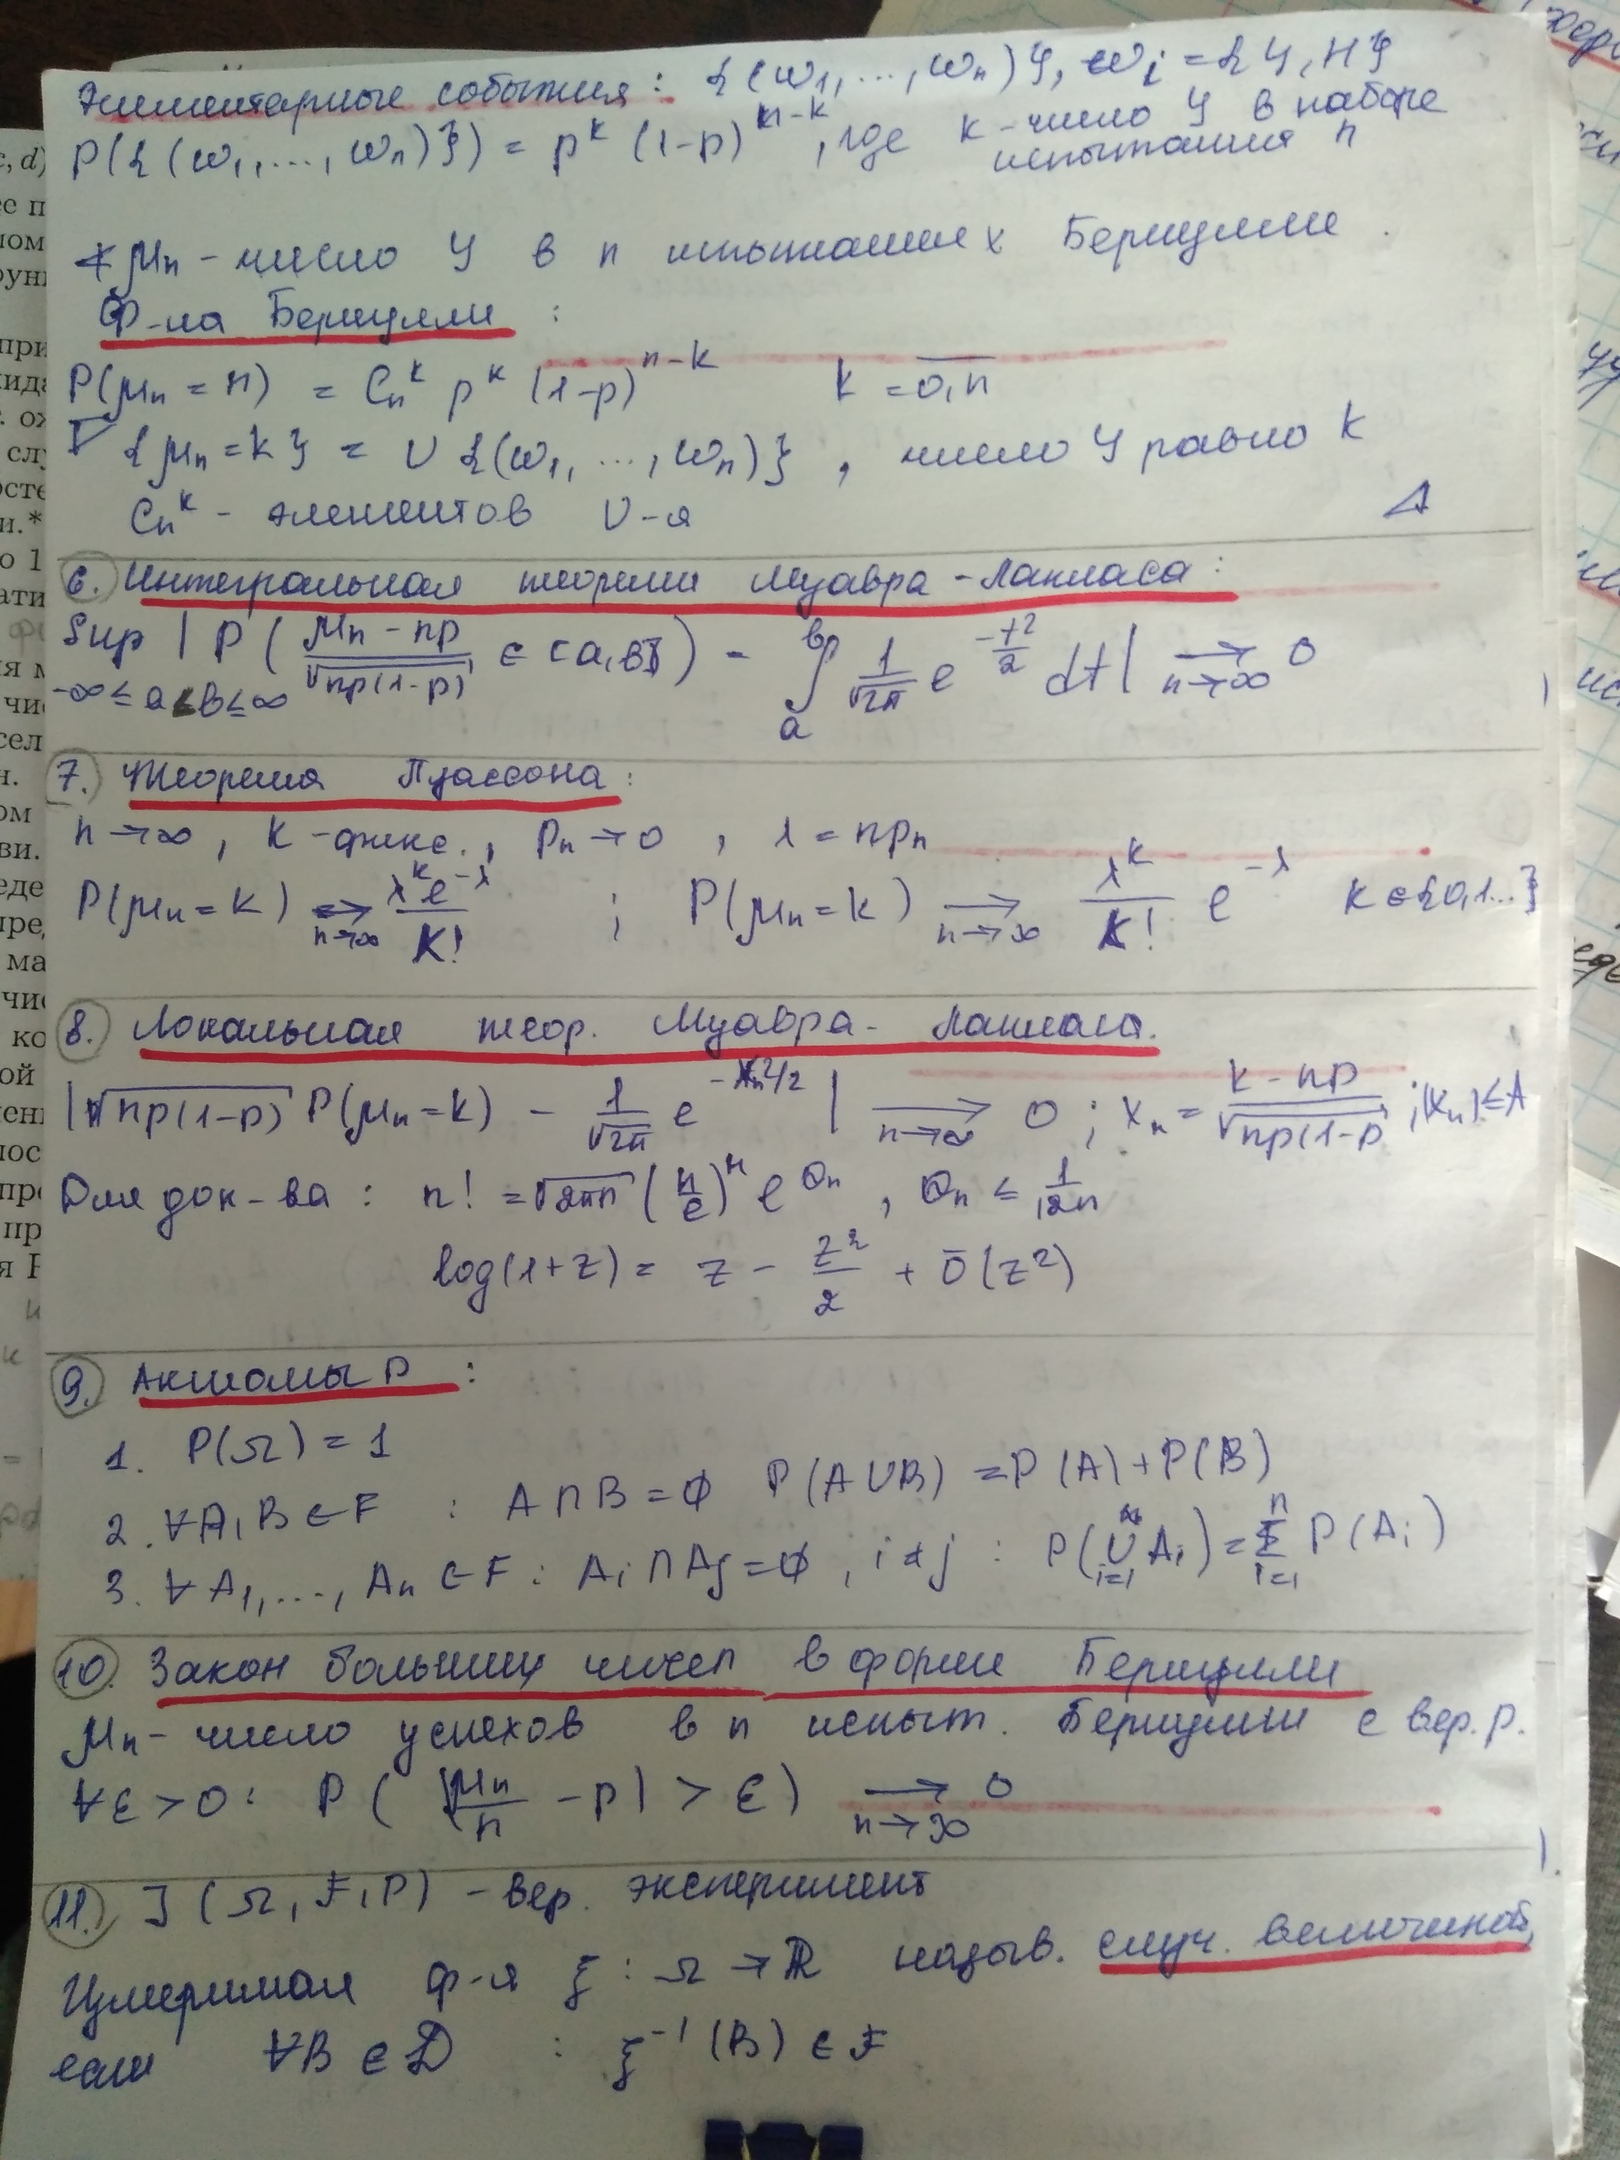 Элементарные события: {(ω₁,...,ωₙ)}, ωᵢ = {У, Н}
P({(ω₁,...,ωₙ)}) = pᵏ (1-p)ⁿ⁻ᵏ, где k - число У в наборе
испытания n
* μₙ - число У в n испытаниях Бернулли.
Ф-ла Бернулли:
P(μₙ = n) = Cₙᵏ pᵏ (1-p)ⁿ⁻ᵏ k = 0,n
∇ {μₙ = k} = ∪ {(ω₁,...,ωₙ)}, число У равно k
Cₙᵏ - элементов ∪-я Δ
6. Интегральная теорема Муавра - Лапласа:
Sup | P ( (μₙ - np)/√(np(1-p)) ∈ [a,b] ) - ∫ₐᵇ 1/√(2π) e^(-t²/2) dt | → 0
-∞ ≤ a < b ≤ ∞ n→∞
7. Теорема Пуассона:
n → ∞, k - фикс., pₙ → 0, λ = npₙ
P(μₙ = k) → λᵏ e^(-λ) / k! ; P(μₙ = k) → λᵏ / k! e^(-λ) k ∈ {0,1...}
n→∞ n→∞
8. Локальная теор. Муавра - Лапласа.
|√(np(1-p)) P(μₙ = k) - 1/√(2π) e^(-xₙ²/2) | → 0 ; xₙ = (k - np)/√(np(1-p) ; |xₙ| ≤ A
n→∞
Для док-ва: n! = √(2πn) (n/e)ⁿ e^(θₙ), θₙ ≤ 1/12n
log(1+z) = z - z²/2 + ō(z²)
9. Аксиомы P:
1. P(Ω) = 1
2. ∀A, B ∈ F : A ∩ B = ∅ P(A ∪ B) = P(A) + P(B)
3. ∀ A₁,..., Aₙ ∈ F : Aᵢ ∩ Aⱼ = ∅, i ≠ j : P(∪ᵢ₌₁ Aᵢ) = Σᵢ₌₁ⁿ P(Aᵢ)
10. Закон больших чисел в форме Бернулли
μₙ - число успехов в n испыт. Бернулли с вер. p.
∀ε > 0 : P ( |μₙ/n - p| > ε ) → 0
n→∞
11. ] (Ω, F, P) - вер. эксперимент
Измеримая ф-я ξ : Ω → ℝ назыв. случ. величиной,
если ∀B ∈ 𝒟 : ξ⁻¹(B) ∈ F